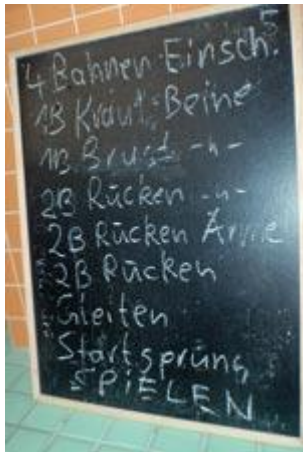 5
4 Bahnen Einsch.
1B Kraul-Beine
1B Brust -"-
2B Rücken -"-
2B Rücken Arme
2B Rücken
Gleiten
Startsprung
SPiELEN